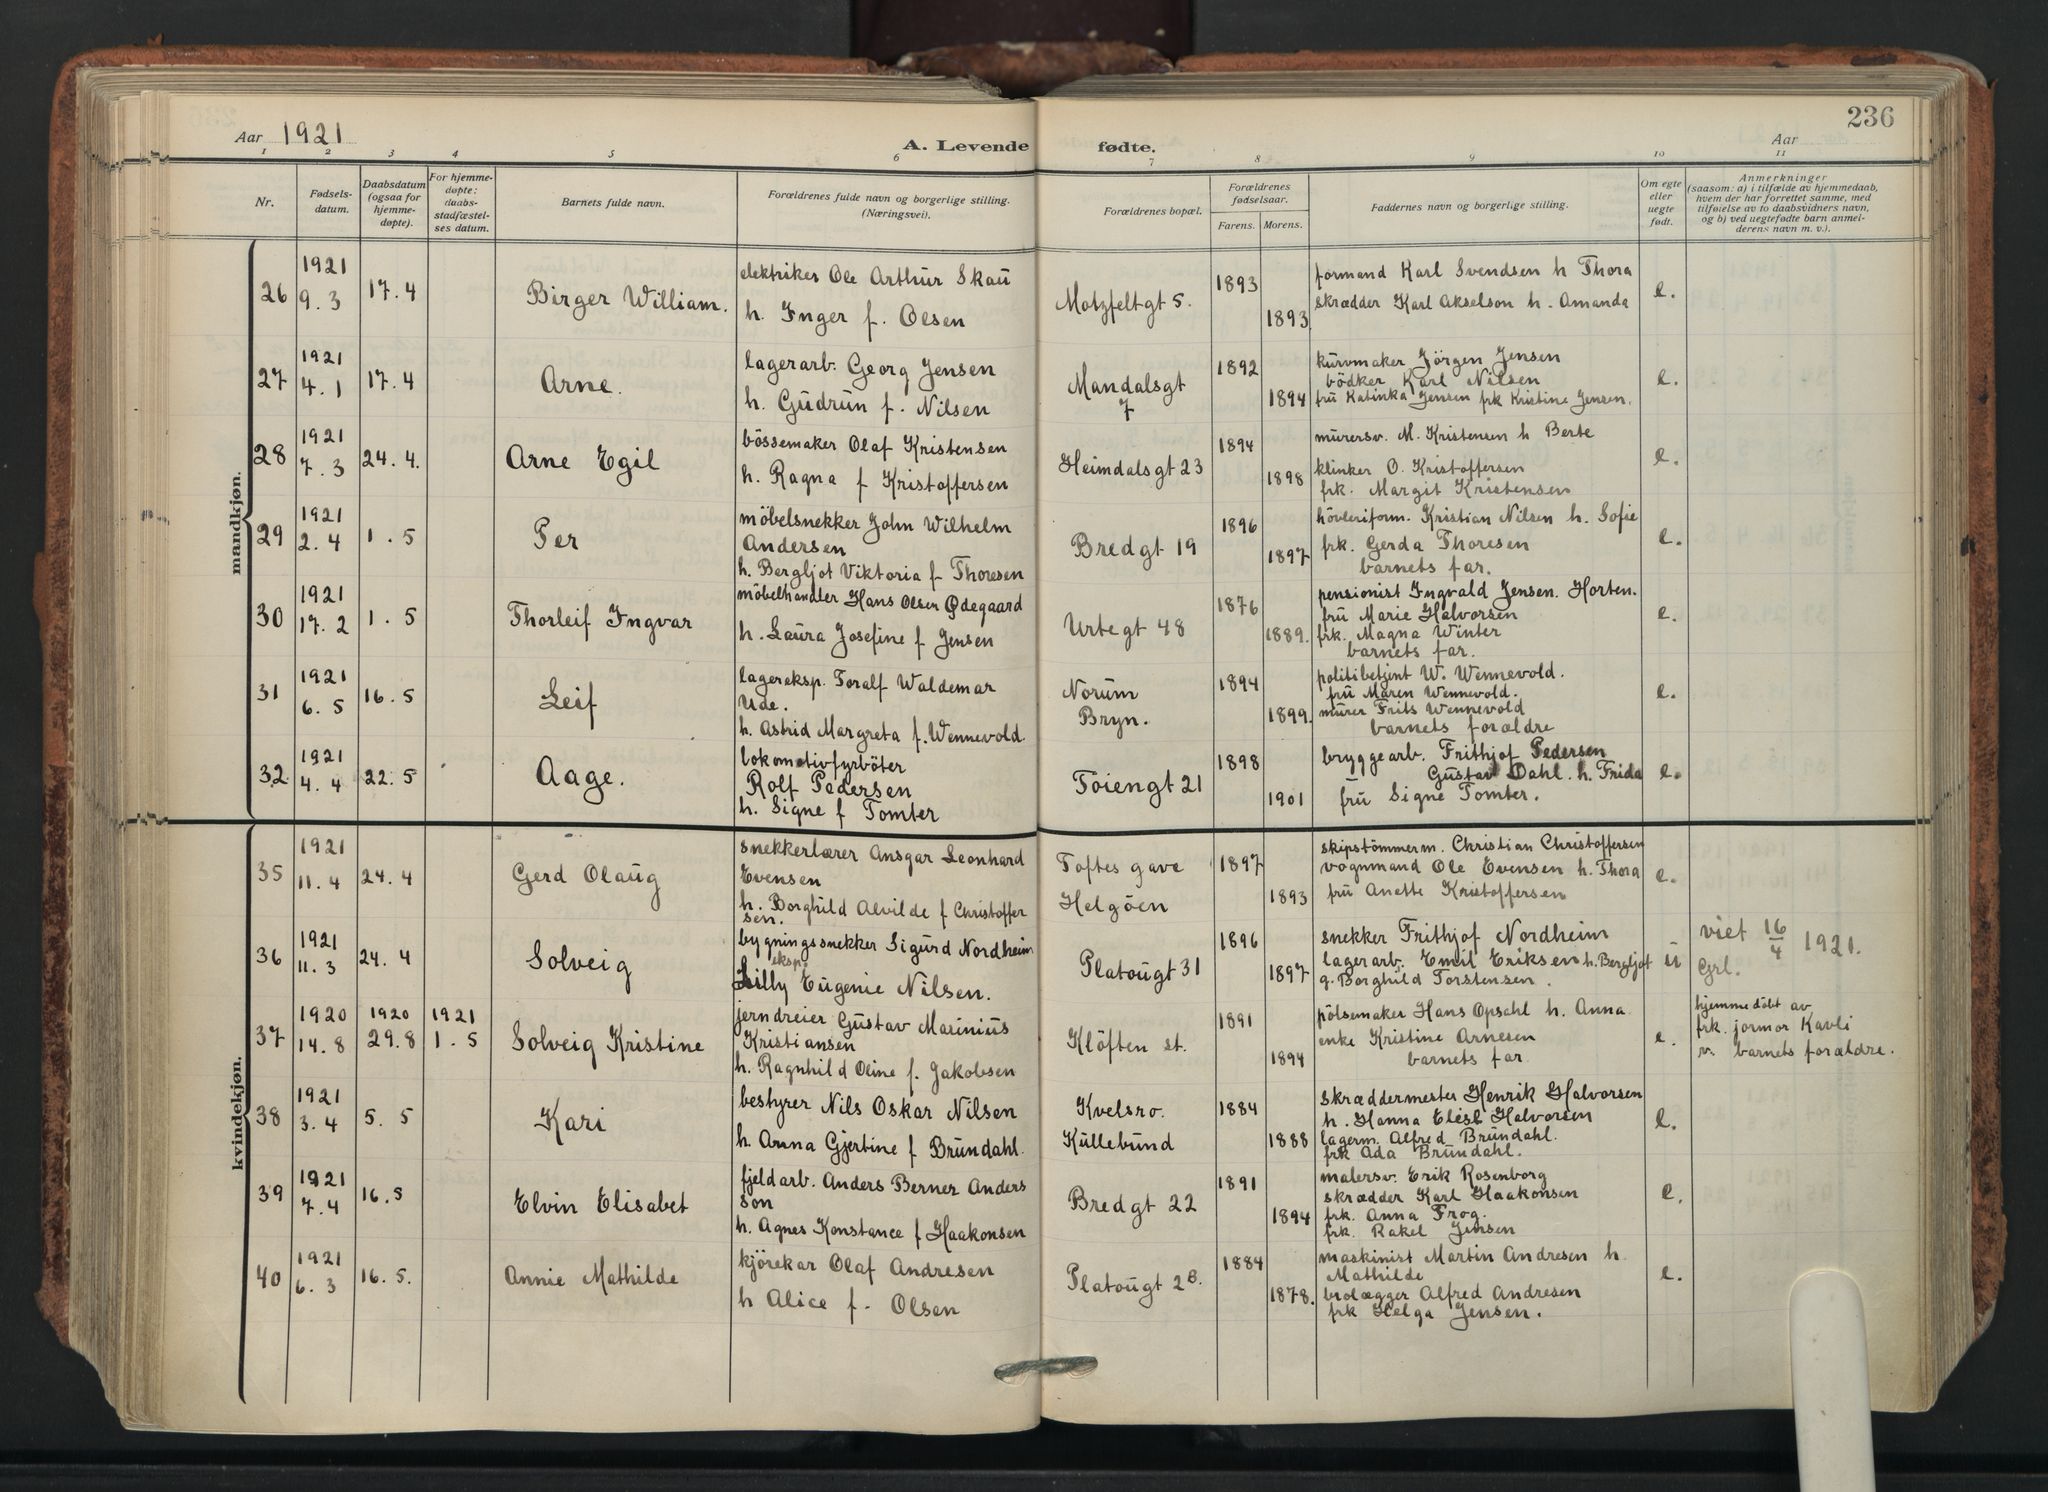 236
Aar 1921
A. Levende fødte.
Aar
1 2 3 4 5 6 7 8 9 10 11
Nr.
Fødsels-
datum.
Daabsdatum
(ogsaa for
hjemme-
døpte).
For hjemme-
døpte:
daabs-
stadfæstel-
ses datum.
Barnets fulde navn.
Forældrenes fulde navn og borgerlige stilling.
(Næringsvei).
Forældrenes bopæl.
Forældrenes
fødselsaar.
Farens. Morens.
Faddernes navn og borgerlige stilling.
Om egte
eller
uegte
født.
Anmerkninger
(saasom: a) i tilfælde av hjemmedaab,
hvem der har forrettet samme, med
tilføielse av to daabsvidners navn,
og b) ved uegtefødte barn anmel-
derens navn m. v.).
mandkjøn.
26
1921
9. 3
17. 4
Birger William.
elektriker Ole Arthur Skau
h. Inger f. Olsen
Motzfeltgt 5.
1893
1893
formand Karl Svendsen h Thora
skrædder Karl Akselson h. Amanda
e.
27
1921
4. 1
17. 4
Arne.
lagerarb. Georg Jensen
h. Gudrun f. Nilsen
Mandalsgt
7
1892
1894
kurvmaker Jörgen Jensen
bödker Karl Nilsen
fru Katinka Jensen frk Kristine Jensen.
e.
28
1921
7. 3
24. 4.
Arne Egil
bössemaker Olaf Kristensen
h. Ragna f Kristoffersen
Heimdalsgt 23
1894
1898
murersv. M. Kristensen h Berte
klinker O. Kristoffersen
frk. Margit Kristensen
e.
29
1921
2. 4
1. 5
Per
möbelsnekker John Wilhelm
Andersen
h. Bergljot Viktoria f Thoresen
Bredgt 19
1896
1897
hövleriform. Kristian Nilsen h. Sofie
frk. Gerda Thoresen
barnets far.
e.
30
1921
17. 2
1. 5
Thorleif Ingvar
möbelhandler Hans Olsen Ødegaard
h. Laura Josefine f Jensen
Urtegt 48
1876
1889.
pensionist Ingvald Jensen. Horten.
fru Marie Halvorsen
frk. Magna Winter
barnets far.
e.
31
1921
6. 5
16. 5
Leif
lagereksp. Toralf Waldemar
Ude.
h. Astrid Margreta f. Wennevold.
Norum
Bryn.
1894
1899.
politibetjent W. Wennevold.
fru Maren Wennevold.
murer Frits Wennevold
barnets forældre
e.
32
1921
4. 4
22. 5
Aage.
lokomotivfyrböter
Rolf Pedersen
h. Signe f Tomter
Töiengt 21
1898
1901
bryggearb. Frithjof Pedersen
Gustav Dahl. h. Frida
fru Signe Tomter.
e.
kvindekjøn.
35
1921
11. 4
24. 4
Gerd Olaug
snekkerlærer Ansgar Leonhard
Evensen
h. Borghild Alvilde f Christoffer
sen.
Toftes gave
Helgöen
1897
1893
skipstömmerm. Christian Christoffersen
vognmand Ole Evensen h. Thora
fru Anette Kristoffersen
e.
36
1921
11. 3
24. 4
Solveig
bygningssnekker Sigurd Nordheim
eksp.
Lilly Eugenie Nilsen.
Platougt 31
1896
1897
snekker Frithjof Nordheim
lagerarb. Emil Eriksen h. Bergljot
g. Borghild Torstensen.
u
viet 16/4 1921.
Grl.
37
1920
14. 8
1920
29. 8
1921
1. 5
Solveig Kristine
jerndreier Gustav Marinius
Kristiansen
h. Ragnhild Oline f. Jakobsen
Klöften st.
1891
1894
pölsemaker Hans Opsahl h. Anna
enke Kristine Arnesen
barnets far
e.
hjemmedöbt av
frk. jormor Kavli
v. barnets forældre.
38
1921
3. 4
5. 5
Kari
bestyrer Nils Oskar Nilsen
h. Anna Gjertine f Brundahl.
Kvelsro.
Kullebund
1884
1888
skræddermester Henrik Halvorsen
h. Hanna Elise Halvorsen
lagerm. Alfred Brundahl.
frk Ada Brundahl.
e.
39
1921
7. 4
16. 5
Elvin Elisabet
fjeldarb. Anders Berner Anders
son
h. Agnes Konstance f Haakonsen
Bredgt 22
1891
1894
malersv. Erik Rosenborg
skrædder Karl Haakonsen
frk. Anna Frog.
frk. Rakel Jensen
e.
40
1921
6. 3
16. 5.
Annie Mathilde
kjörekar Olaf Andresen
h Alice f. Olsen
Platougt 2B.
1884
1878.
maskinist Martin Andresen h.
Mathilde
brolægger Alfred Andresen
frk Helga Jensen.
e.